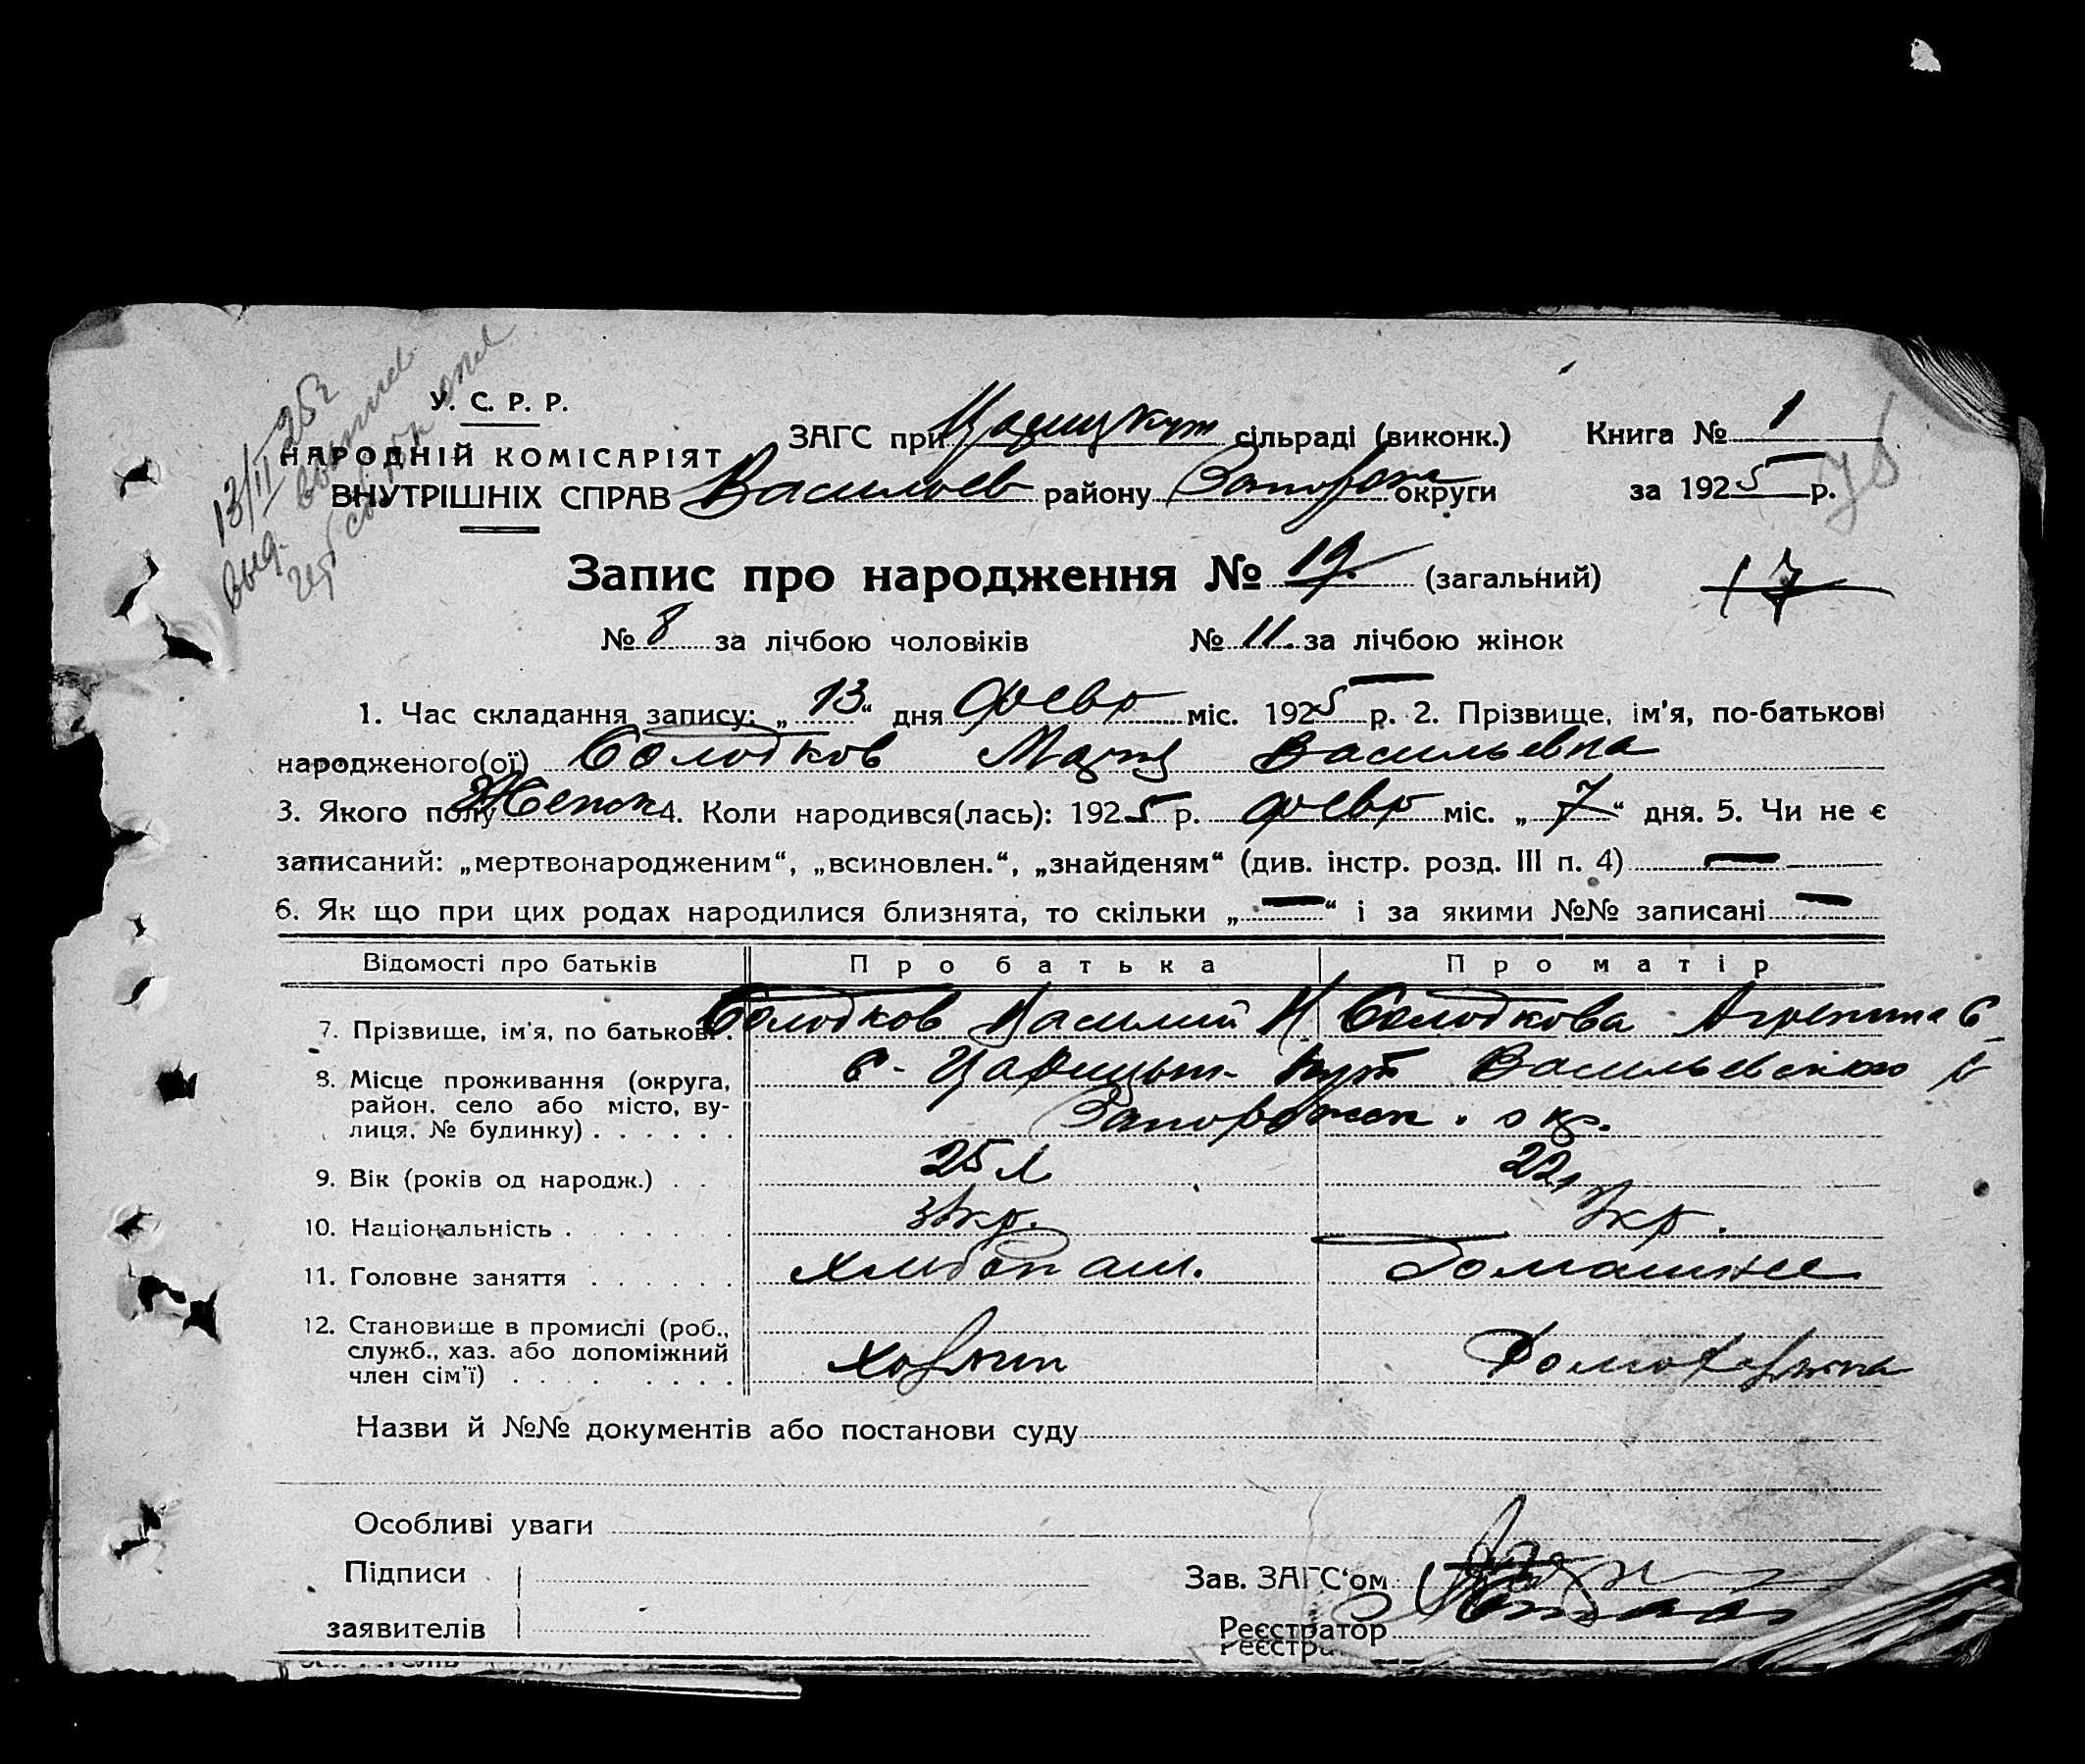 13/II 25г
У. С. Р. Р.
НАРОДНІЙ КОМІСАРІЯТ
ВНУТРІШНІХ СПРАВ
ЗАГС при Царицкут сільраді (виконк.) Книга № 1
Васильев району Запорож округи за 1925 р.
Запис про народження № 19. (загальний) 17
№ 8 за лічбою чоловіків № 11. за лічбою жінок
1. Час складання запису: „13“ дня февр міс. 1925 р. 2. Прізвище, ім'я, по-батькові
народженого(ої) Солодков Васильевна
3. Якого полу Женск 4. Коли народився(лась): 1925 р. февр міс. „7“ дня. 5. Чи не є
записаний: „мертвонародженим“, „всиновлен.“, „знайденям“ (див. інстр. розд. III п. 4) —
6. Як що при цих родах народилися близнята, то скільки „—“ і за якими №№ записані —
Відомості про батьків Про батька Про матір
7. Прізвище, ім'я, по батькові. Солодков Василий И Солодкова Агрепина С
8. Місце проживання (округа, район, село або місто, вулиця, № будинку) с. Царицын Кут Васильевского р
Запорожск. окр.
9. Вік (років од народж.) 25 л 22
10. Національність Укр. Укр.
11. Головне заняття хлибопаш. Домашнее
12. Становище в промислі (роб., служб., хаз. або допоміжний член сім'ї) хозяин Домохозяйка
Назви й №№ документів або постанови суду
Особливі уваги
Підписи
заявителів
Зав. ЗАГС'ом
Реєстратор